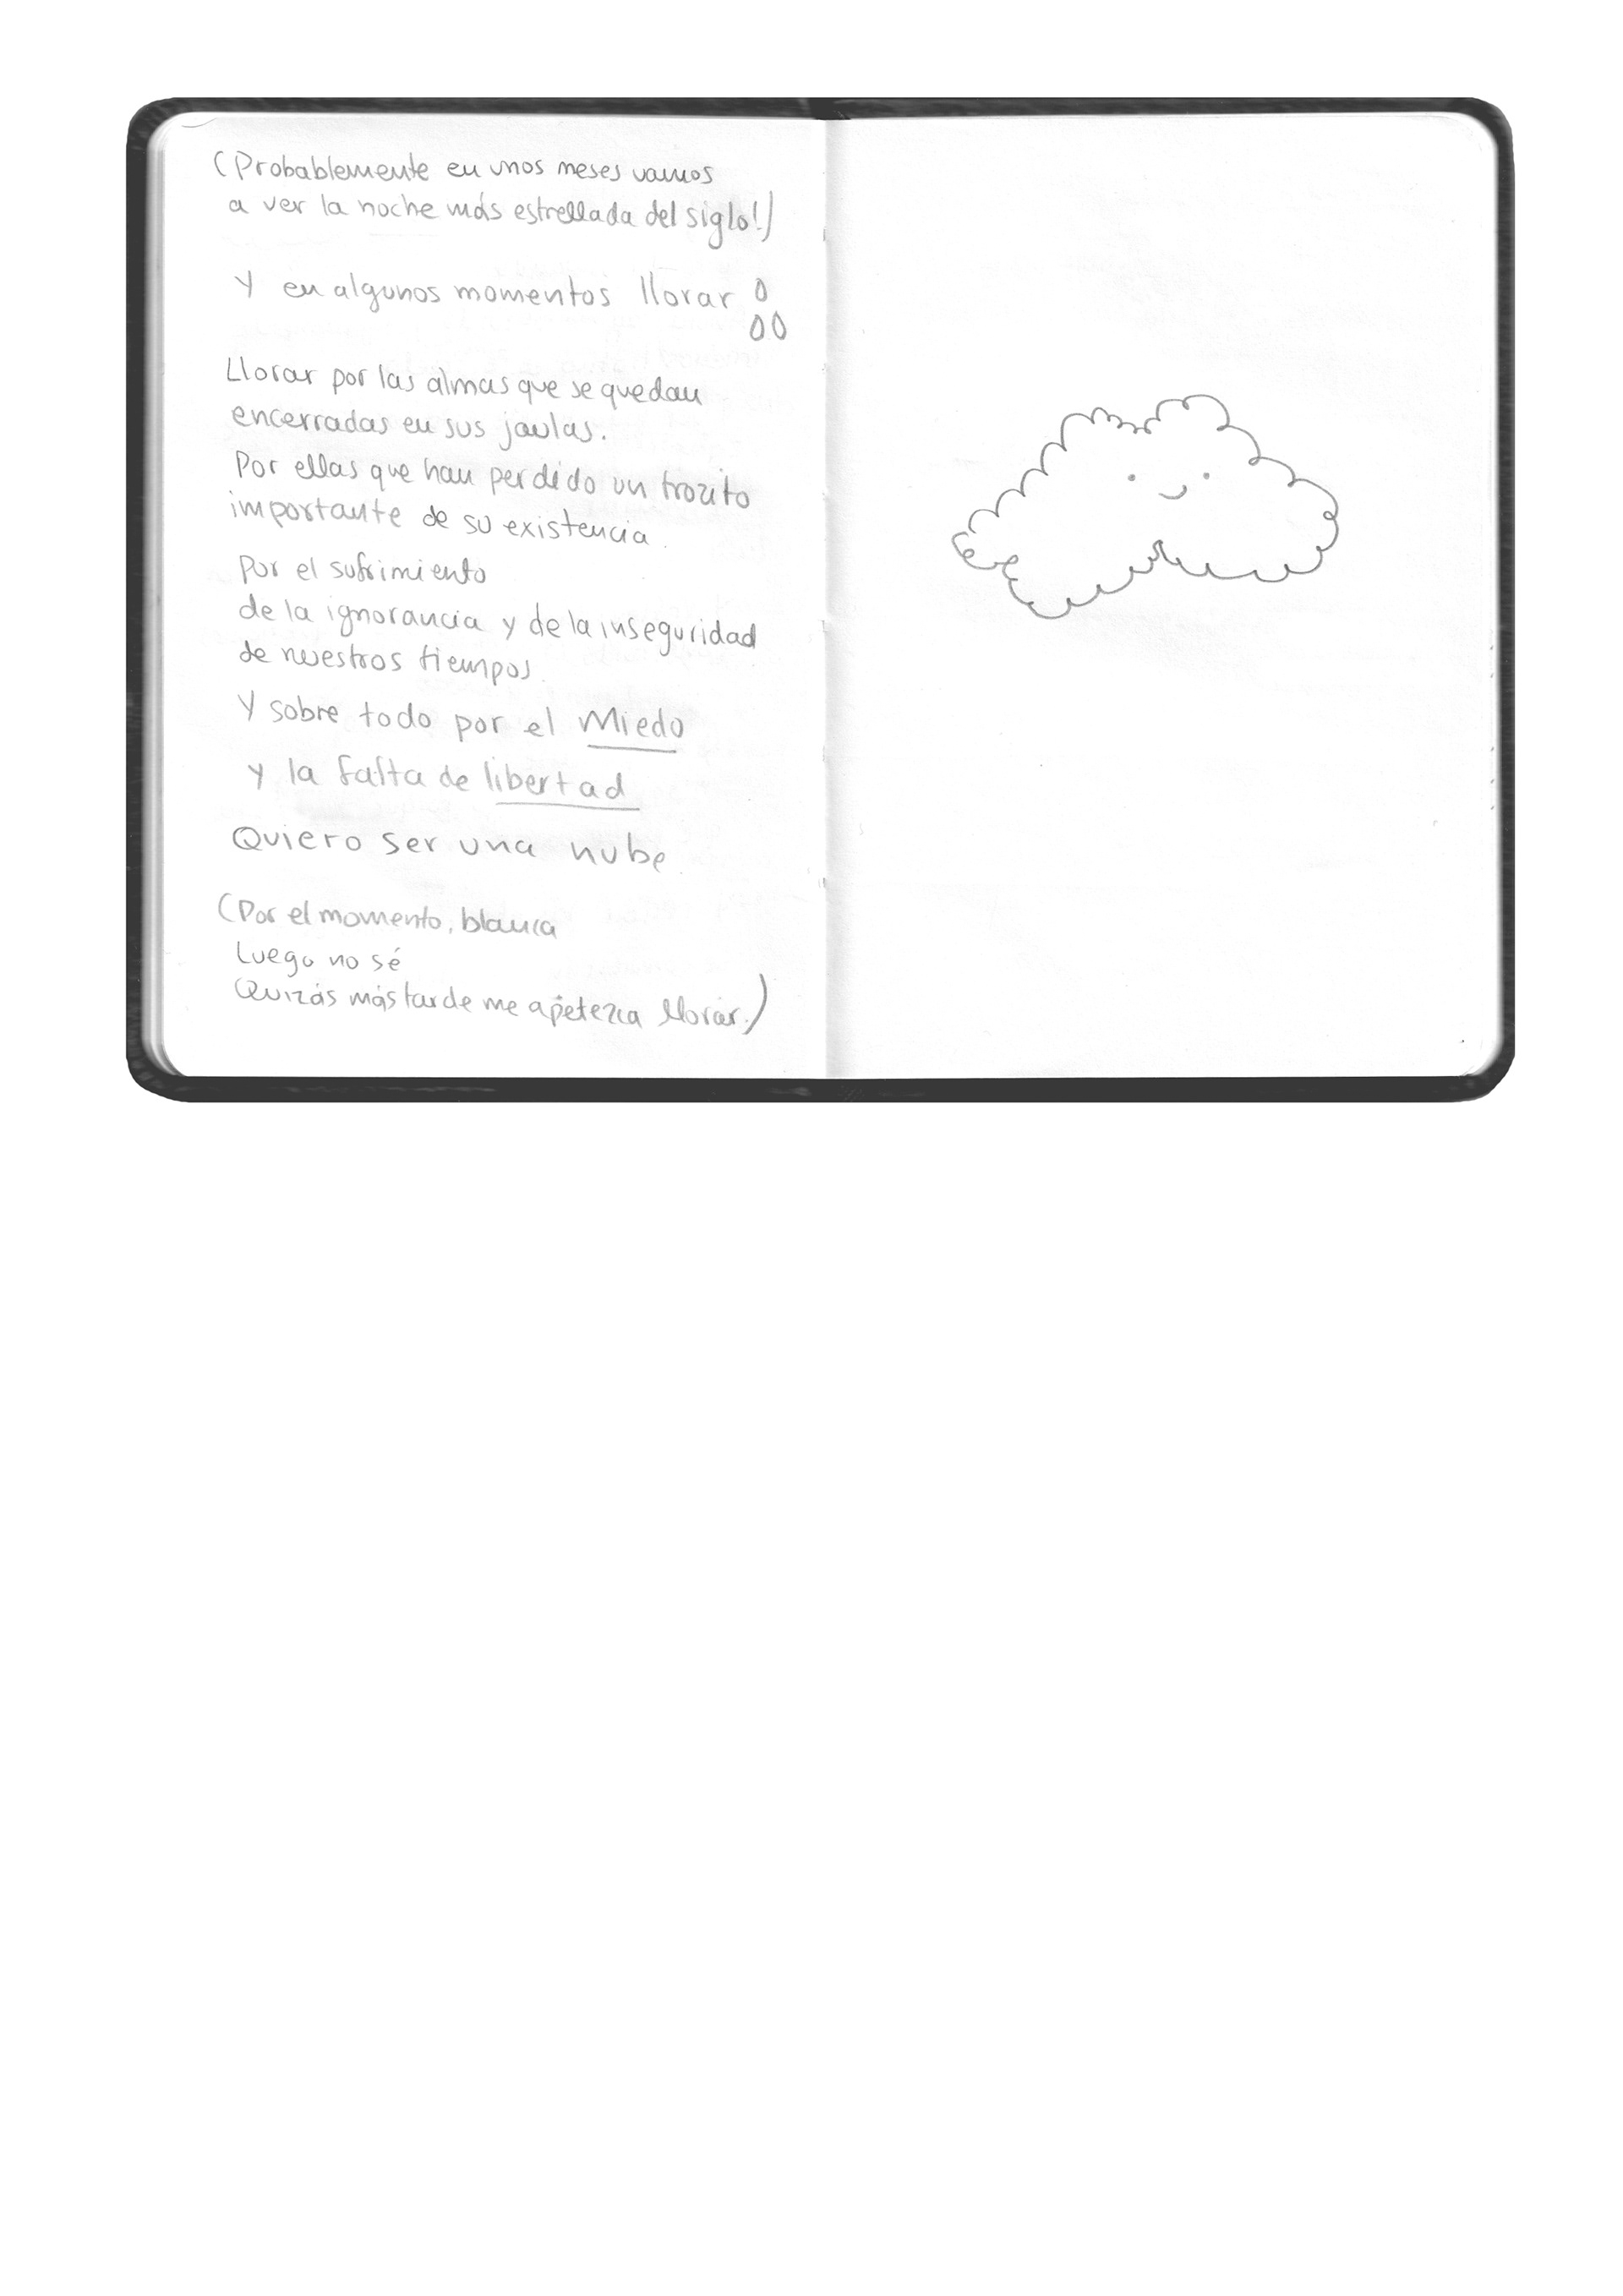 (Probablemente en unos meses vamos
a ver la noche más estrellada del siglo!)
Y en algunos momentos llorar
Llorar por las almas que se quedan
encerradas en sus jaulas.
Por ellas que han perdido un trozito
importante de su existencia.
Por el sufrimiento
de la ignorancia y de la inseguridad
de nuestros tiempos.
Y sobre todo por el Miedo
y la falta de libertad
Quiero ser una nube.
(Por el momento, blanca
Luego no sé
Quizás más tarde me apetezca llorar.)